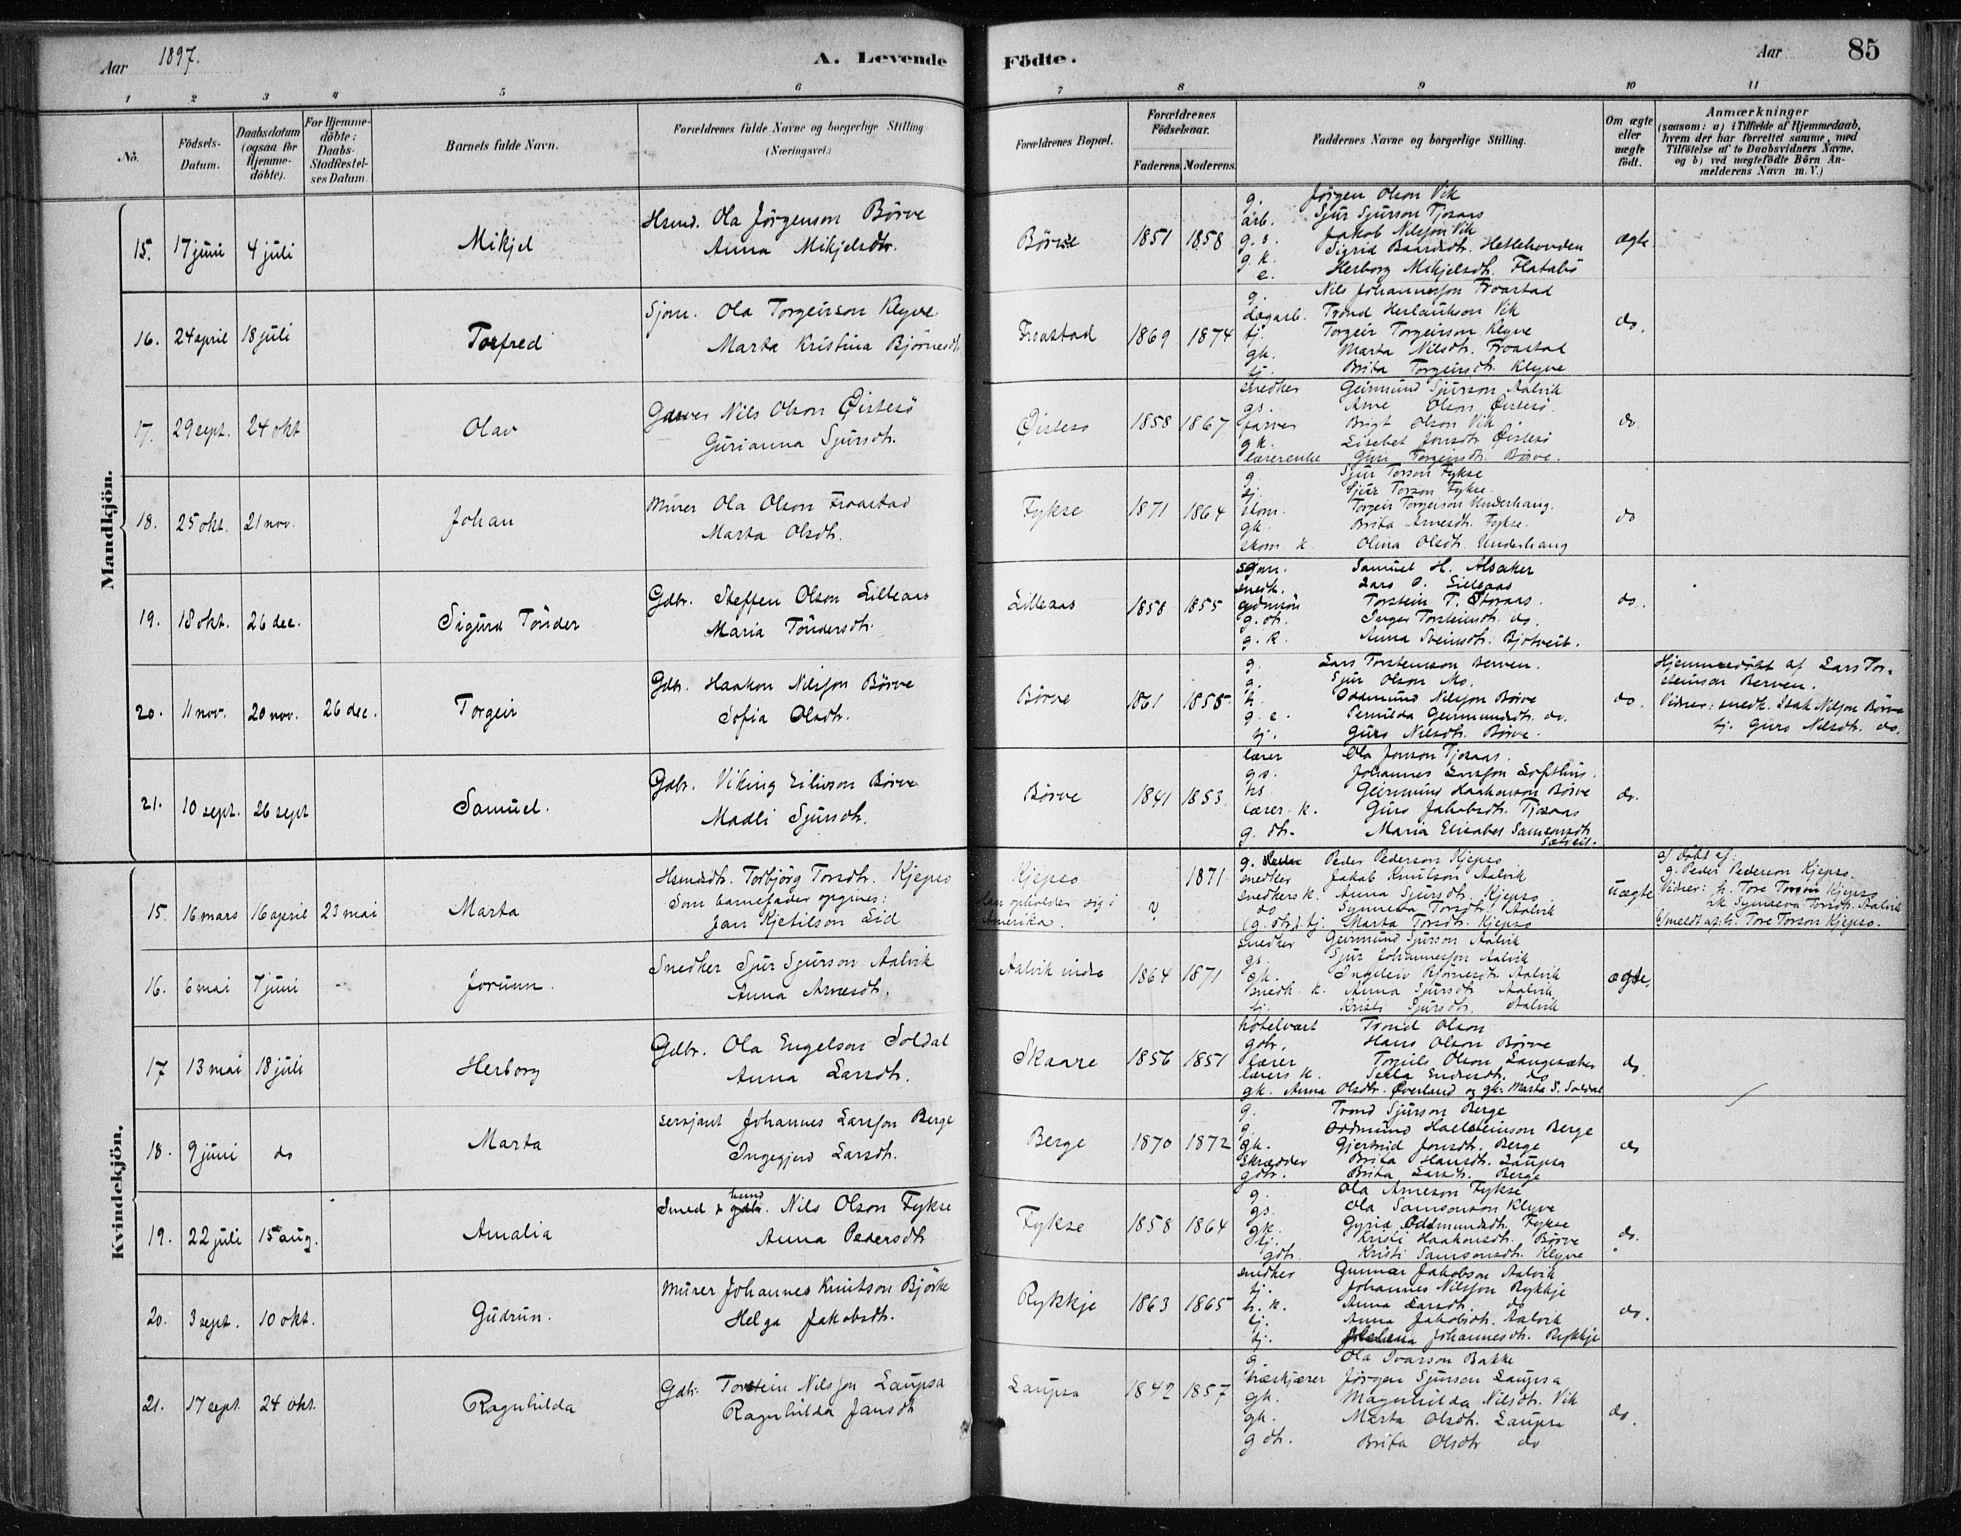 Aar 1897. A. Levende Födte. Aar 85
1 2 3 4 5 6 7 8 9 10 11
No.
Födsels-Datum.
Daabsdatum (ogsaa for Hjemme-döbte).
For Hjemme-döbte: Daabs-Stadfæstel-ses Datum
Barnets fulde Navn.
Forældrenes fulde Navne og borgerlige Stilling (Næringsvei.)
Forældrenes Bopæl.
Forældrenes Födselsaar.
Faderens Moderens
Faddernes Navne og borgerlige Stilling.
Om ægte eller uægte födt.
Anmærkninger
(saasom: a) i Tilfælde af Hjemmedaab, hvem der har forrettet samme, med Tilföielse af to Daabsvidners Navne, og b) ved uægtefödte Börn An-melderens Navn m. V.)
Mandkjön.
15. 17 juni 4 juli Mikjel
Hsmd. Ola Jørgenson Börve
Anna Mikjelsdtr.
Börve 1851 1858
g. Jörgen Olson Vik
arb. Sjur Sjurson Tjoraas
g. s. Jakob Nilsson Vik
g. k. Sigrid Baardsdt. Hetlehovden
e. Herborg Mikjelsdt. Flatabö
ægte
16. 24 april 18 juli Torfred
Sjöm. Ola Torgeirson Klyve
Marta Kristina Bjørnesdt.
Froastad 1869 1874
g. Nils Johannesson Froastad
dagarb. Trond Herlaukson Vik
tj. Torgeir Torgeirson Klyve
gk. Marta Nilsdt. Froastad
tj. Brita Torgeirsdt. Klyve
do.
17. 29 sept. 24 okt Olav
Garver Nils Olson Øistesö
Gurianna Sjursdt.
Øistesö 1858 1867
snedker Geirmund Sjurson Aalvik
gs. Arne Olson Øistesö
farver Brigt Olson Vik
gk. Lisabet Jonsdt. Øistesö
lærerenke Guri Torgeirsdt. Börve.
do.
18. 25 okt. 21 nov. Johan
Murer Ola Olson Froastad
Marta Olsdt.
Fykse 1871 1864
g. Sjur Torson Fykse
tj. Sjur Torson Fykse
skom. Torgeir Torgeirson Underhaug.
gk. Brita Arnesdt. Fykse.
skom. k Olina Olsdt. Underhaug
do
19. 18 okt. 26 dec. Sigurd Tönder
Gdbr. Steffen Olson Lilleaas
Maria Töndersdt.
Lilleaas 1858 1855
sjöm. Samuel H. Alsaker
snedk. Lars O. Lilleaas
gdmsön Torstein T. Storaas.
g. dt. Inger Torsteinsdt. do.
g. k. Anna Sveinsdt. Bjotveit.
do.
20. 11 nov. 20 nov. 26 dec. Torgeir
Gdbr. Haakon Nilsson Börve
Sofia Olsdt.
Börve 1861 1855
g. Lars Torsteinson Berven.
g. Sjur Olson Mo.
h. Oddmund Nilsson Börve
g. e. Pernilda Geirmundsdt. do.
tj. Guro Nilsdt. Börve.
do.
Hjemmedöbt af Lars Tor-
steinson Berven.
Vidner: snedk. Isak Nilsson Börve
tj. Guro Nilsdt. do.
21. 10 sept. 26 sept Samuel.
Gdbr. Viking Eilivson Börve
Madli Sjursdt.
Börve 1841 1853
lærer Ola Jonson Tjoraas.
gs. Johannes Larsson Lofthus.
hs. Geirmund Haakonson Börve
lærer. k. Guro Jakobsdt. Tjoraas
g. dt. Maria Elisabet Samsonsdt.
Sætveit.
do.
Kvindekjön.
15. 16 mars 16 april 23 mai Marta
Hsmdsdt. Torbjörg Torsdt. Kjepso
Som barnefader opgives:
Jan Kjetilson Lid
Kjepso
Han opholder sig i
Amerika.
1871
g. Peder Pederson Kjepso
snedker Jakob Knutson Aalvik
snedkers k. Anna Sjursdt. Kjepso
do Synneva Torsdt. Aalvik
(g. dtr.) tj. Marta Torsdt. Kjepso
uægte
a) döbt af:
g. Peder Pederson Kjepso.
Vidner: h. Tore Torson Kjepso
k. Synneva Torsdt. Aalvik
b) meldt af: h. Tore Torson Kjepso.
16. 6 mai 7 juni Jorunn.
Snedker Sjur Sjurson Aalvik
Anna Arnesdt.
Aalvik indre 1864 1871
snedker Geirmund Sjurson Aalvik
gs. Sjur Johannesson Aalvik
gk. Ingeleiv Bjørnesdt. Aalvik
snedk. k. Anna Sjursdt. Aalvik
tj. Kristi Sjursdt. Aalvik
ægte.
17 13 mai 18 juli Herborg
Gdbr. Ola Engelson Soldal
Anna Larsdt.
Skaare 1856 1851
hotelvært Trond Olson
gdbr. Hans Olson Börve
lærer Torgils Olson Langesæter
lærers k. Sella Endresdt. do
gk. Anna Olsdt. Øverland og gk. Marta S. Soldal
do
18. 9 juni do Marta
sersjant Johannes Larsson Berge
Ingegjerd Larsdt.
Berge 1870 1872
g. Trond Sjurson Berge
g. Oddmund Halsteinson Berge
gk. Gjertrud Jonsdt. Berge
Skrædder Brita Hansdt. Laupsa
gdtr. Brita Larsdt. Berge
do
19. 22 juli 15 aug. Amalia
Smed & gdbr. Nils Olson Fykse
Anna Pedersdt
Fykse 1858 1864
g. Ola Arneson Fykse
gs. Ola Samsonson Klyve
gk. Gyrid Oddmundsdt. Fykse
tj. Kristi Haakonsdt. Börve
gdt. Kristi Samsonsdt. Klyve
do.
20. 3 sept. 10 okt. Gudrun.
Murer Johannes Knutson Björke
Helga Jakobsdt.
Rykkje 1863 1865
snedker Gunnar Jakobson Aalvik
tj. Johannes Nilsson Rykkje
h. k. Anna Larsdt. do
tj. Anna Jakobsdt. Aalvik
tj. Johannesdt. Rykkje
do.
21. 17 sept. 24 okt. Ragnhilda
Gdbr. Torstein Nilsson Laupsa
Ragnhilda Jansdt
Laupsa 1842 1857
g. Ola Ivarson Bakke
Jörgen Sjurson Laupsa
gk. Magnhilda Nilsdt. Vik
gk. Marta Olsdt. Laupsa
g dt. Brita Olsdtr do
do.